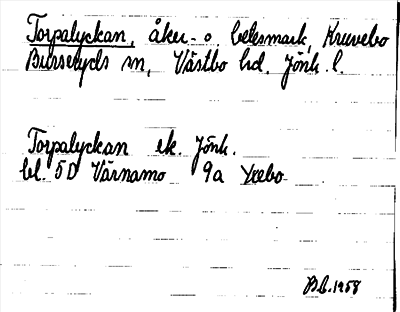 Torpalyckan, åker- o. betesmark, Kruvebo
Burseryds sn, Västbo hd. Jönk. l.
Torpalyckan ek. Jönk.
bl. 5D Värnamo 9a Yxebo
B.L. 1958